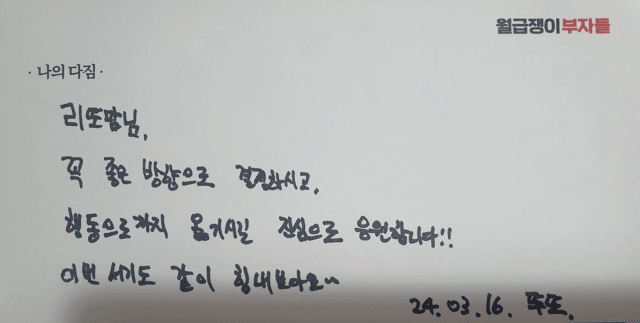 월급쟁이부자들
· 나의 다짐 ·
리또맘님,
꼭 좋은 방향으로 결정하시고,
행동으로까지 옮기시길 진심으로 응원합니다!!
이번 학기도 같이 힘내보아요~
24. 03. 16. 뚜또.